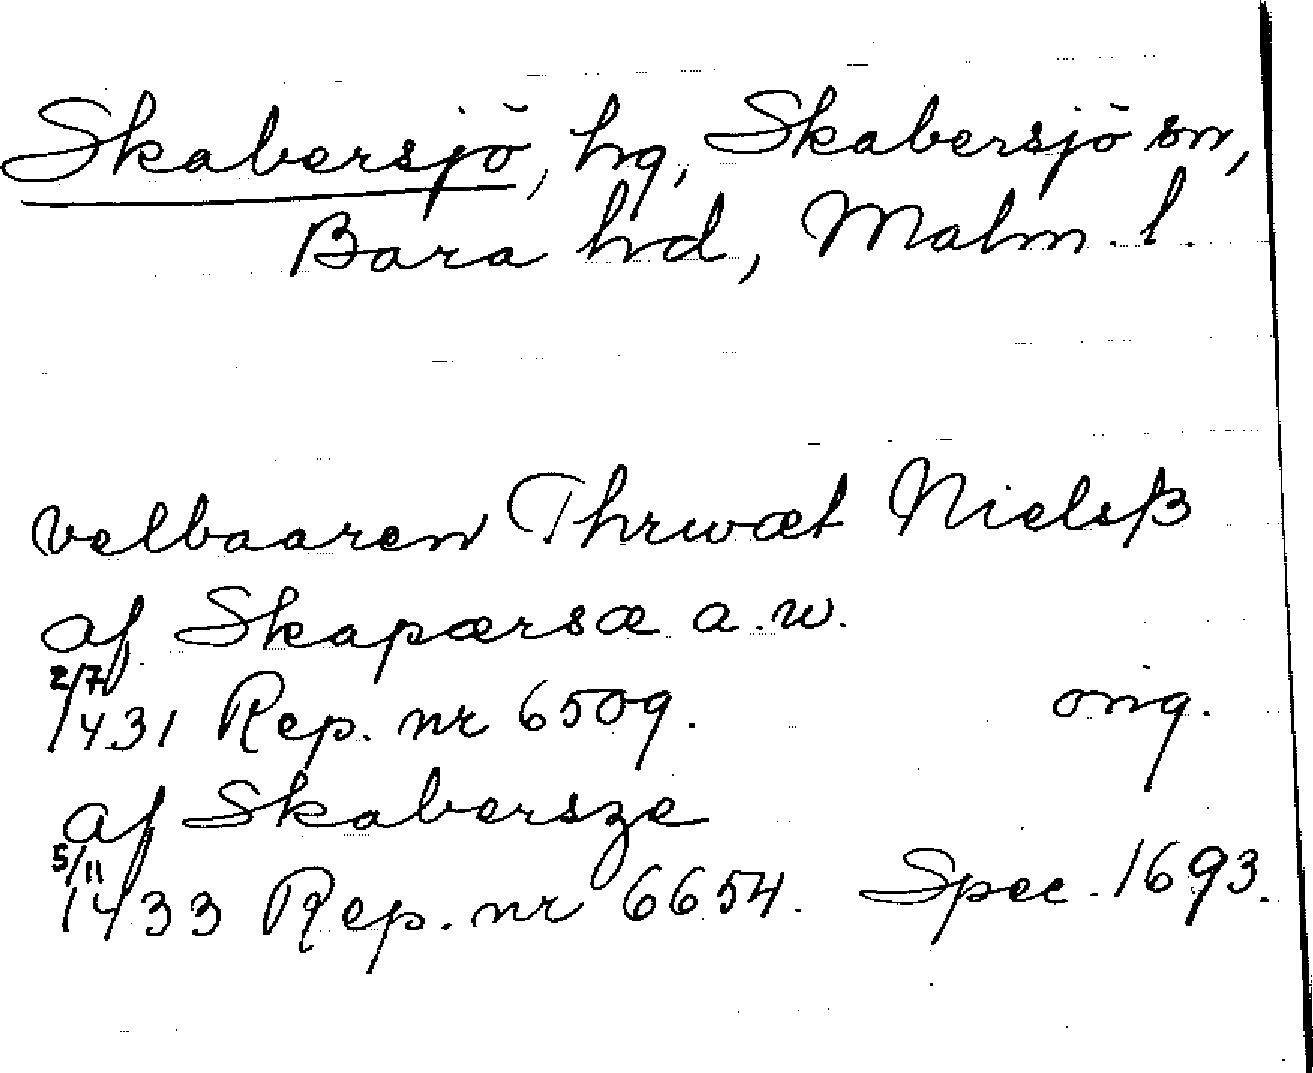 Skabersjö, hg, Skabersjö sn,
Bara hd, Malm. l.
velbaaren Thrwæt Nielsß
af Skapærsæ a.w.
2/7 1431 Rep. nr 6509. orig.
af Skabersze
5/11 1433 Rep. nr 6654. Spec. 1693.